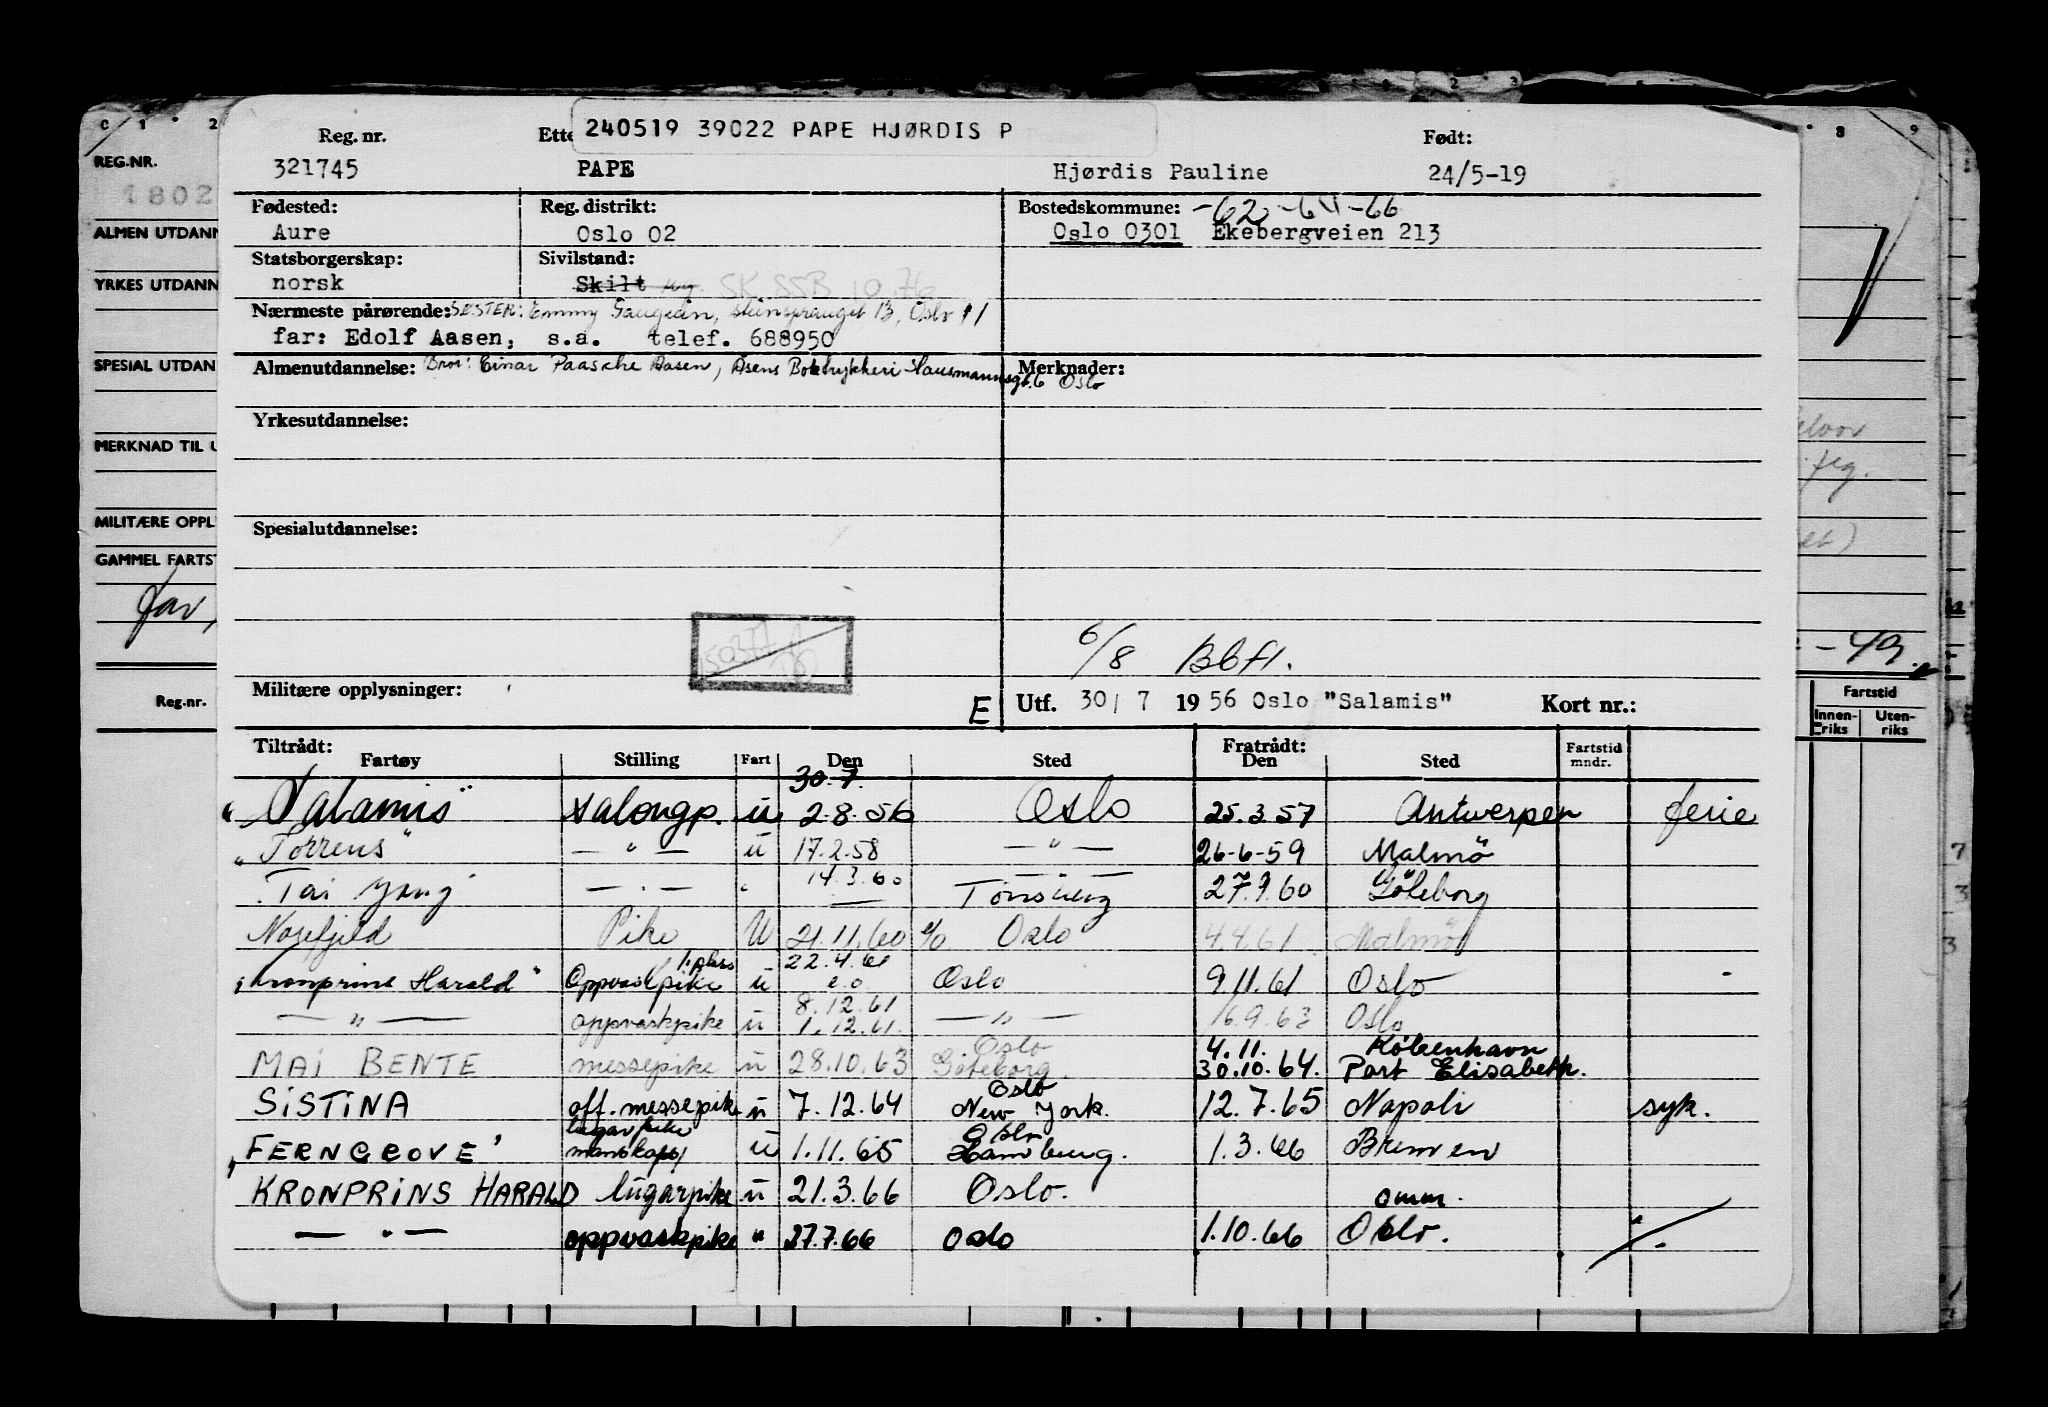 240519 39022 PAPE HJØRDIS P
Reg. nr. Ette Født:
321745 PAPE Hjørdis Pauline 24/5-19
Fødested: Reg. distrikt: Bostedskommune: -62 -64 -66
Aure Oslo 02 Oslo 0301 Ekebergveien 213
Statsborgerskap: Sivilstand:
norsk Skilt ug. SK SSB 10.76
Nærmeste pårørende: SØSTER: Emmy Oslo 11
far: Edolf Aasen, s.a. telef. 688950
Almenutdannelse: Bror: Einar Paasche Aasen, Åsens Boktrykkeri Hausmannsgt. 6 Oslo Merknader:
Yrkesutdannelse:
Spesialutdannelse:
6/8 Bbfl.
Militære opplysninger: E Utf. 30/ 7 19 56 Oslo "Salamis" Kort nr.:
Tiltrådt: Fratrådt:
Fartøy Stilling Fart Den Sted Den Sted Fartstid mndr.
30.7.
"Salamis" salongp. u 2.8.56 Oslo 25.3.57 Antwerpen ferie
"Torrens" — " — u 17.2.58 — " — 26-6-59 Malmö
14.3.60 — " —
Tai Yang — " — " — Tönsberg 27.9.60 Göteborg
Norefjeld Pike U 21.11.60 e/o Oslo 4.4.61 Malmö
1. plass 22.4.61
"Kronprins Harald" Oppvaskpike u e.o Oslo 9.11.61 Oslo
8.12.61
— " — oppvaskpike u 1.12.61. — " — 16.9.63 Oslo
Oslo 4.11. København
MAI BENTE messepike u 28.10.63 Göteborg. 30.10.64. Port Elisabeth.
Oslo
SISTINA off. messepike u 7.12.64 New York. 12.7.65 Napoli syk.
lugarpike Oslo
"FERNGROVE" mannskaps/ u 1.11.65 Hamburg. 1.3.66 Bremen
KRONPRINS HARALD lugarpike u 21.3.66 Oslo. omm.
— " — oppvaskpike " 27.7.66 Oslo 1.10.66 Oslo.
REG.NR.
1802
ALMEN UTDANN
YRKES UTDANN
SPESIAL UTDAN
MERKNAD TIL U
MILITÆRE OPPL
GAMMEL FARTST
far,
Reg.nr.
- 49.
Fartstid
Innen-riks Uten-riks